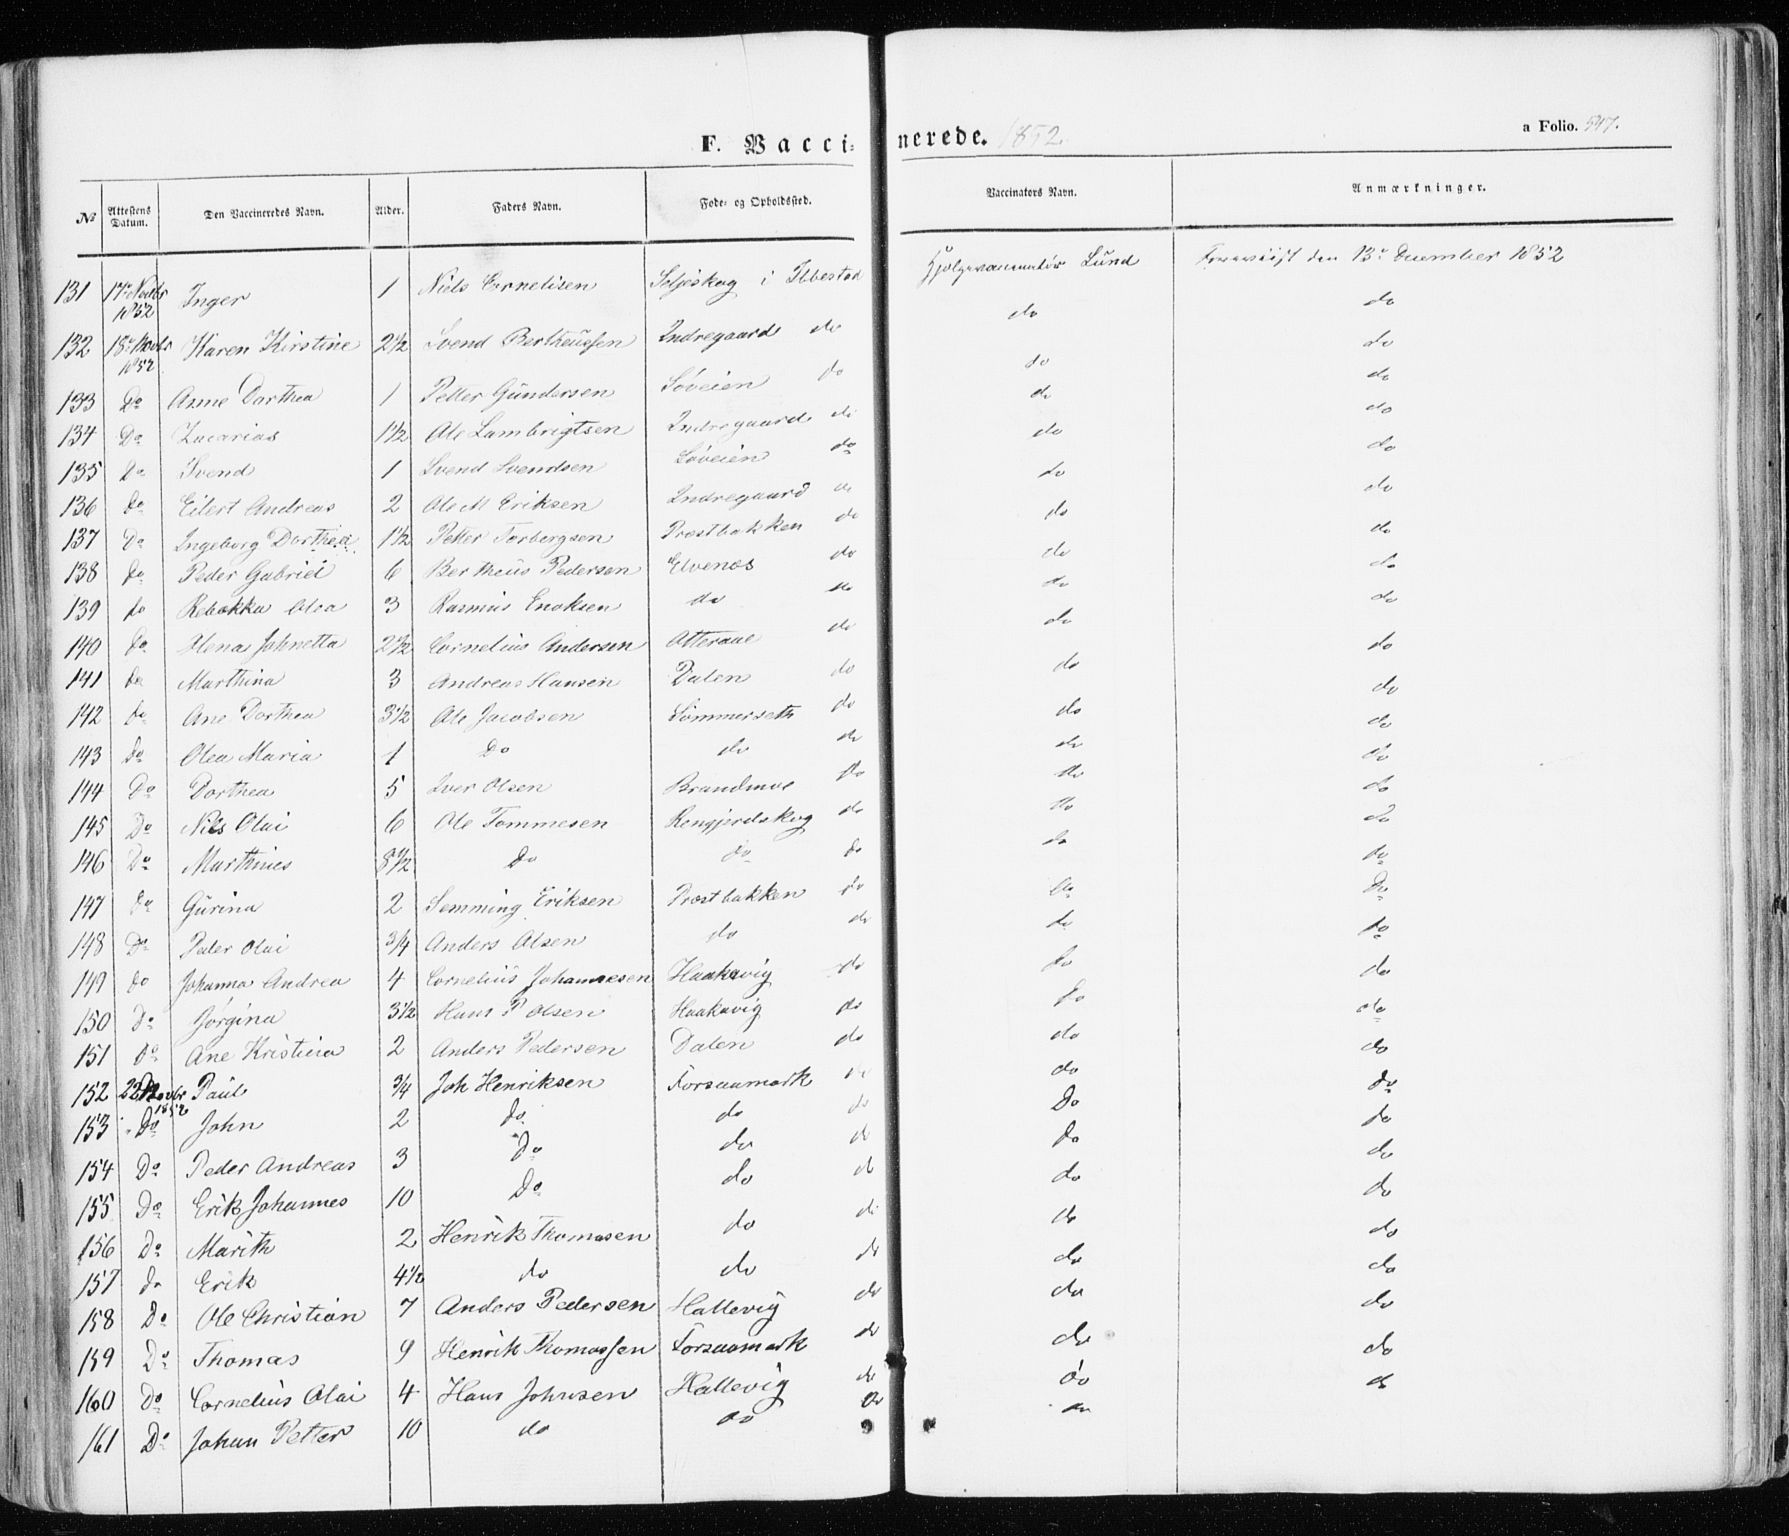 F. Vaccinerede. 1852. a Folio. 547.
№ Attestens Datum. Den Vaccineredes Navn. Alder. Faders Navn. Føde- og Opholdssted. Vaccinators Navn. Anmærkninger.
131 17de Novbr 1852 Inger 1 Niels Cornelisen Seljeskog i Ibbestad Hjelpevaccinatør Lund Foreviist den 13de December 1852
132 18de Novbr 1852 Karen Kirstine 2 1/2 Svend Bertheussen Indregaard do do do
133 Do Anne Dorthea 1 Petter Gundersen Søveien do do do
134 Do Zacarias 1 1/2 Ole Lambrigtsen Indregaard do do do
135 Do Svend 1 Svend Svendsen Søveien do do do
136 Do Eilert Andreas 2 Ole M Eriksen Indregaard do do do
137 Do Ingeborg Dorthea 1 1/2 Petter Torbergsen Prestbakken do do do
138 do Peder Gabriel 6 Bertheus Pedersen Elvenes do do do
139 do Rebekka Olea 3 Rasmus Enoksen do do do do
140 Do Olena Johnetta 2 1/2 Cornelius Andersen Atteraae do do do
141 do Marthina 3 Andreas Hansen Dalen do do do
142 do Ane Dorthea 3 1/2 Ole Jacobsen Sommerseth do do do
143 Do Olea Maria 1 Do do do do do
144 Do Dorthea 5 Iver Olsen Brandmoe do do do
145 Do Nils Olai 6 Ole Tommesen Rengjerdskog do do do
146 Do Marthines 8 1/2 Do do do do do
147 do Gurina 2 Semming Eriksen Prestbakken do do Do
148 Do Peder Olai 3/4 Anders Olsen do do do do
149 do Johanna Andrea 4 Cornelius Johannesen Haakavig do do do
150 Do Jørgina 3 1/2 Hans P Olsen Haakavig do do do
151 Do Ane Kristina 2 Anders Pedersen Dalen do do do
152 22 Novbr 1852 Paul 3/4 Joh Henriksen Forsaamark do do do
153 Do John 2 do do do Do do
154 Do Peder Andreas 3 Do do do do do
155 Do Erik Johannes 10 Do do do do do
156 Do Marith 2 Henrik Thomasen do do do do
157 do Erik 4 1/2 do do do do do
158 Do Ole Christian 7 Anders Pedersen Hallevig do do do
159 Do Thomas 9 Henrik Thomassen Forsaamark do do do
160 Do Cornelius Olai 4 Hans Johnsen Hallevig do do do
161 Do Johan Petter 10 do do do do